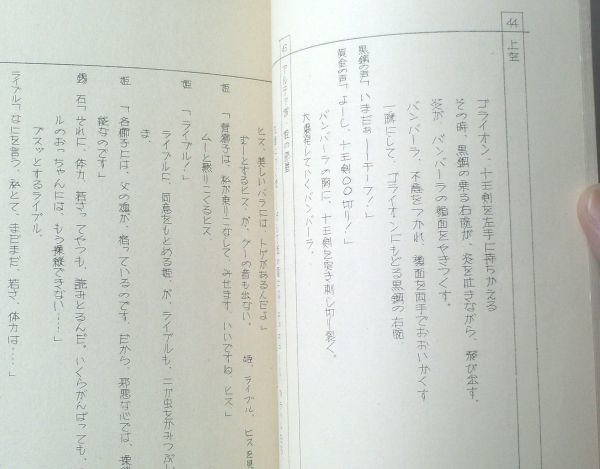 44 上空
ゴライオン、十王剣を左手に持ちかえる
その時、黒鋼の乗る右腕が、炎を吐きながら、飛び出す。
炎が、バンバーラの顔面をやきつくす。
バンバーラ、不意をつかれ、顔面を両手でおおいかくす
一瞬にして、ゴライオンにもどる黒鋼の右腕
黒鋼の声「いまだぁーーチーフ!」
黄金の声「よーし、十王剣〇〇切り!」
バンバーラの胸に、十王剣を突き刺し切り裂く。
大爆発していくバンバーラ。
45 アルテア城・姫の部屋
姫、ライブル、ヒスを見
ヒス、美しいバラには、トゲがあるんだよ」
むーとするヒス が、グーの音も出ない。
姫 「青獅子は、私が乗りこなして、みせます、いいですね ヒス」
ムーと黙りこくるヒス
姫 「ライブル!」
ライブルに、同意をもとめる姫、が、ライブルも、ニガ虫をかみつぶし
ま、
姫 「名獅子には、父の魂が、宿っているのです、だから、邪悪な心では、操
能なのです」
錫 石「それに、体力、若さってやつも、読みとるんだ。いくらがんばっても、
ルのおっちゃんには、もう操縦できない……」
ブスッとするライブル。
ライブル「なにを言う、私とて、まだまだ、若さ、体力は……」